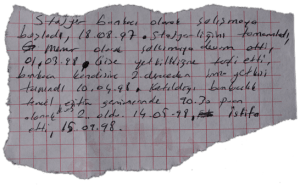 Stajyer bankacı olarak çalışmaya
başladı, 18.08.97. Stajyerliğini tamamladı,
memur olarak çalışmaya devam etti,
01.03.98. Gişe yetkililiğine terfi etti,
bankası kendisine 2.dereceden imza yetkisi
tanındı 10.04.98. Katıldığı bankacılık
temel eğitim seminerinde 90.70 puan
alarak 2. oldu 14.09.98, istifa
etti, 15.09.98.